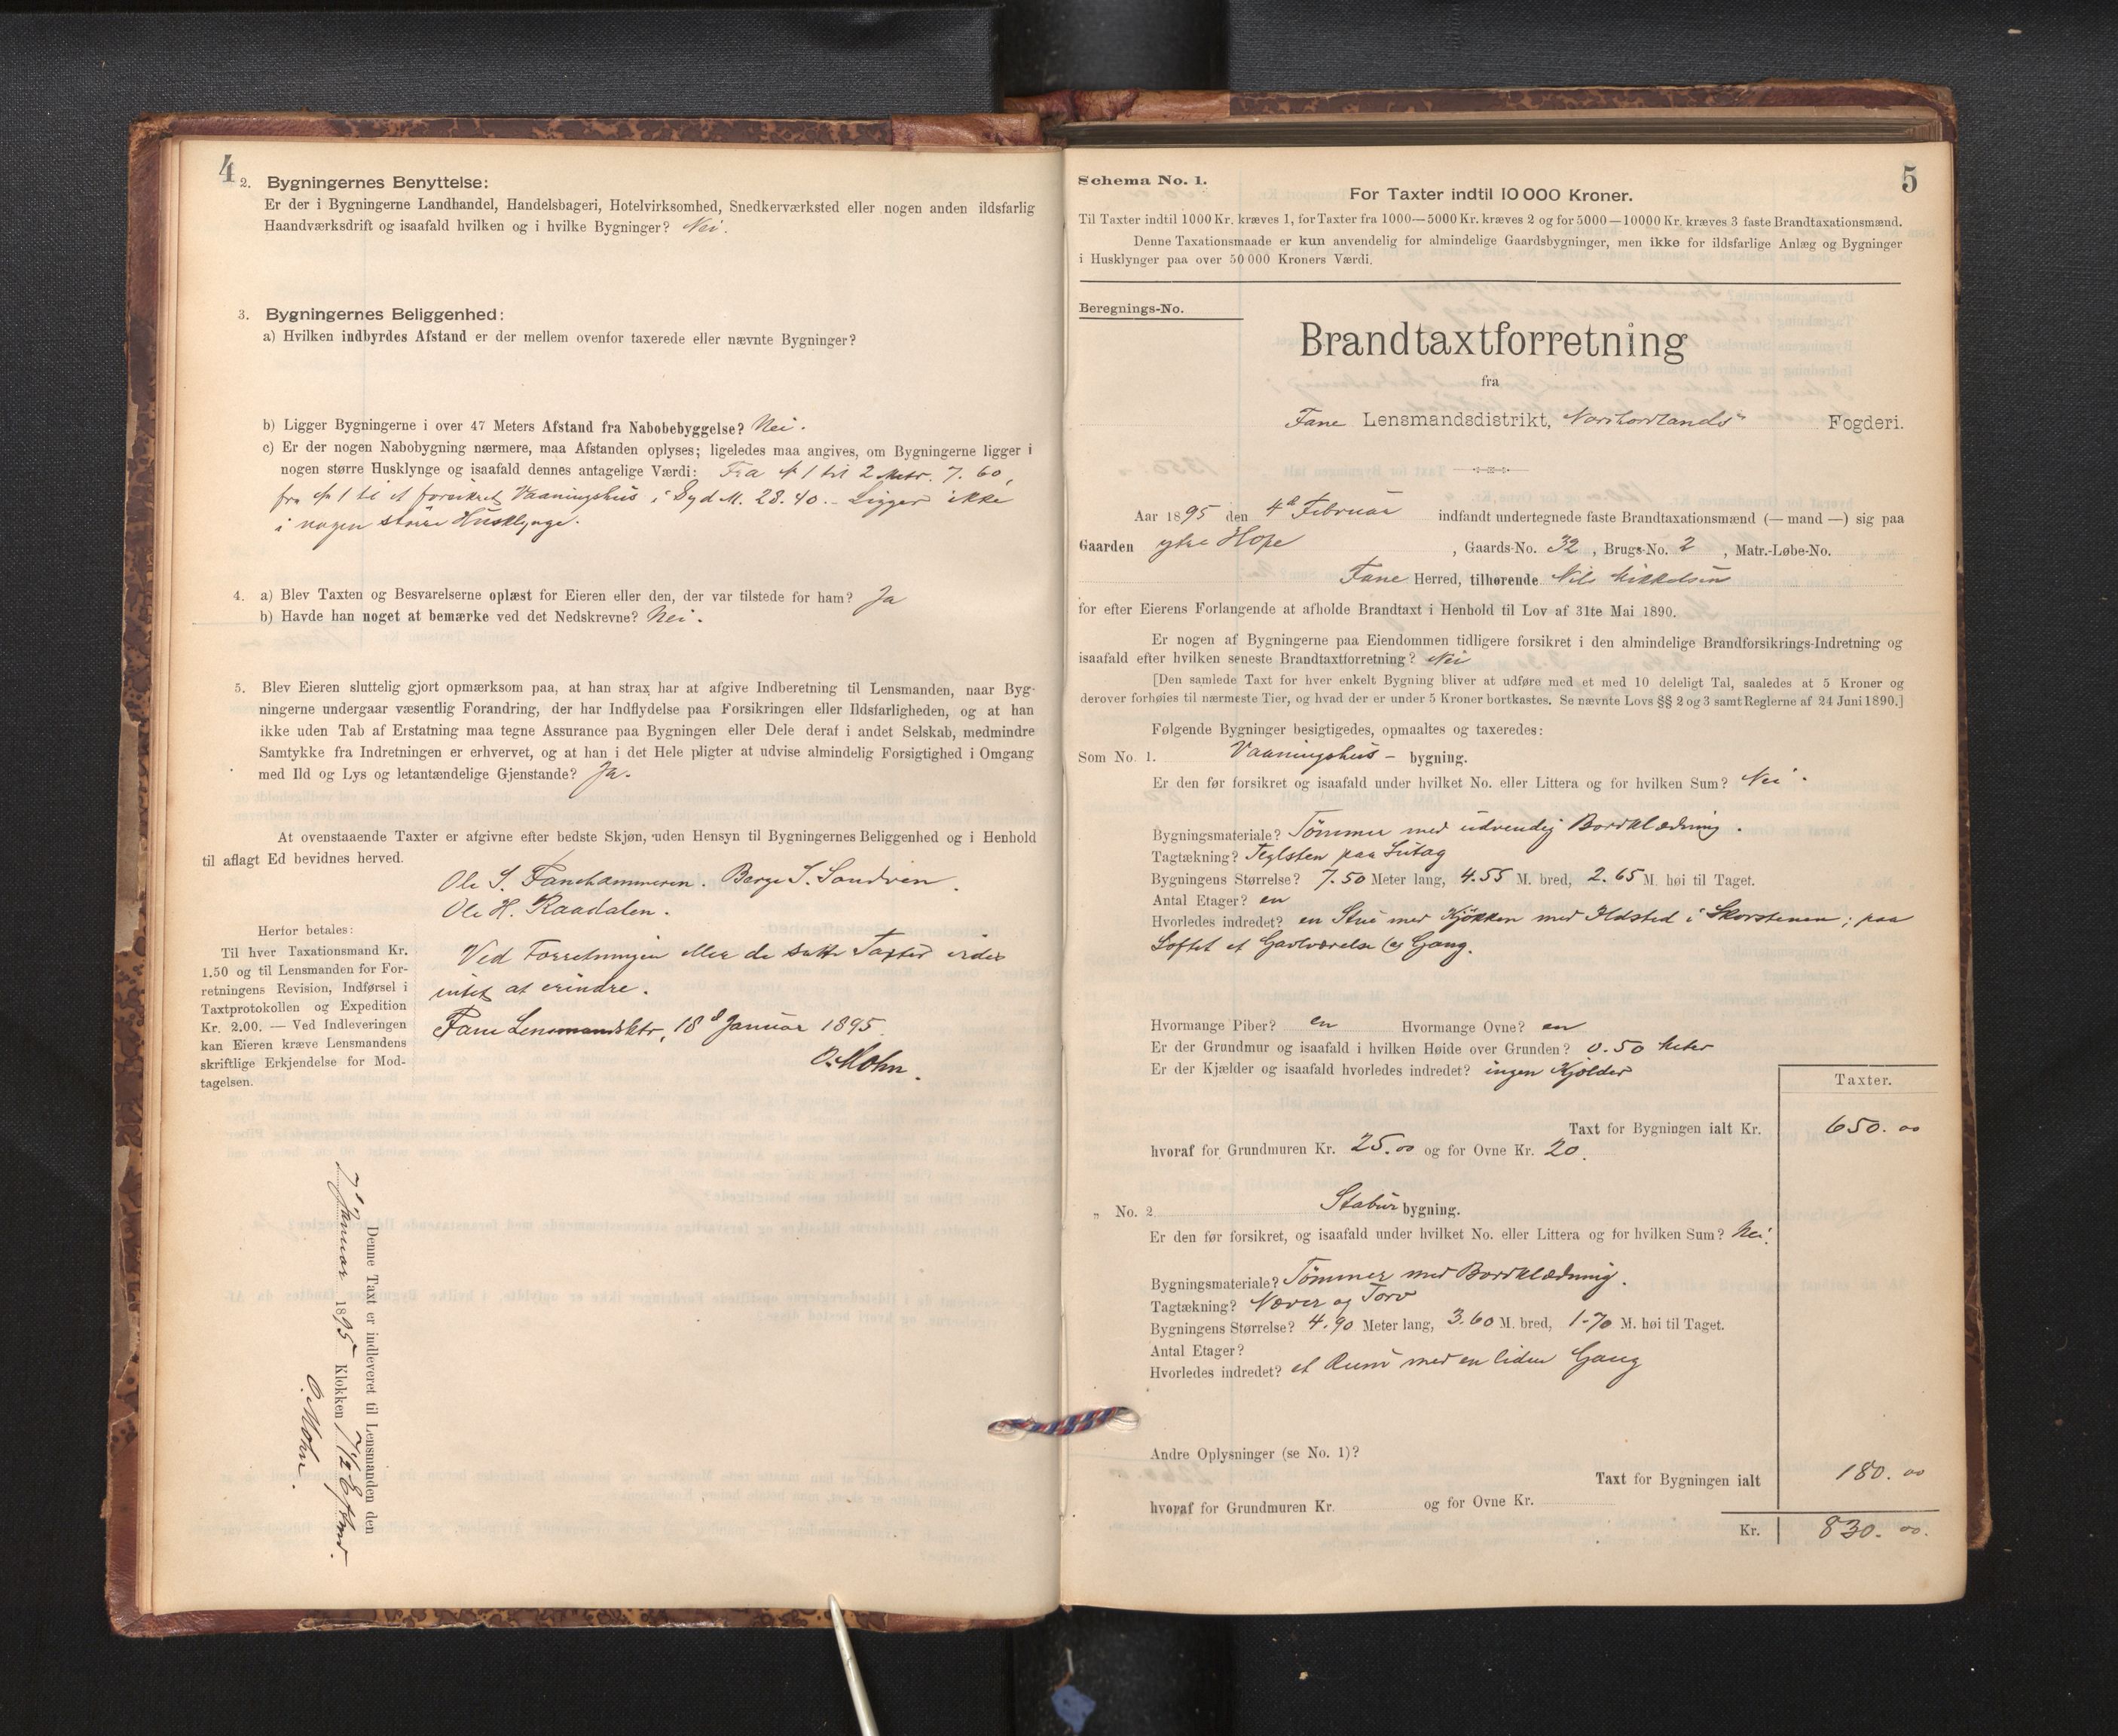 4
2. Bygningernes Benyttelse:
Er der i Bygningerne Landhandel, Handelsbageri, Hotelvirksomhed, Snedkerværksted eller nogen anden ildsfarlig
Haandværksdrift og isaafald hvilken og i hvilke Bygninger? Nei.
3. Bygningernes Beliggenhed:
a) Hvilken indbyrdes Afstand er der mellem ovenfor taxerede eller nævnte Bygninger?
b) Ligger Bygningerne i over 47 Meters Afstand fra Nabobebyggelse? Nei.
c) Er der nogen Nabobygning nærmere, maa Afstanden oplyses; ligeledes maa angives, om Bygningerne ligger i
nogen større Husklynge og isaafald dennes antagelige Værdi: Fra № 1 til 2 Metr. 7.60,
fra № 1 til et forsikret Vaaningshus i Syd M. 28.40. - Ligger ikke
i nogen større Husklynge.
4. a) Blev Taxten og Besvarelserne oplæst for Eieren eller den, der var tilstede for ham? Ja
b) Havde han noget at bemærke ved det Nedskrevne? Nei.
5. Blev Eieren sluttelig gjort opmærksom paa, at han strax har at afgive Indberetning til Lensmanden, naar Byg-
ningerne undergaar væsentlig Forandring, der har Indflydelse paa Forsikringen eller Ildsfarligheden, og at han
ikke uden Tab af Erstatning maa tegne Assurance paa Bygningen eller Dele deraf i andet Selskab, medmindre
Samtykke fra Indretningen er erhvervet, og at han i det Hele pligter at udvise almindelig Forsigtighed i Omgang
med Ild og Lys og letantændelige Gjenstande? Ja.
At ovenstaaende Taxter er afgivne efter bedste Skjøn, uden Hensyn til Bygningernes Beliggenhed og i Henhold
til aflagt Ed bevidnes herved.
Ole S. Fanehammeren. Berge S. Sandven.
Ole H. Raadalen.
Herfor betales:
Til hver Taxationsmand Kr.
1.50 og til Lensmanden for For-
retningens Revision, Indførsel i
Taxtprotokollen og Expedition
Kr. 2.00. — Ved Indleveringen
kan Eieren kræve Lensmandens
skriftlige Erkjendelse for Mod-
tagelsen.
Ved Forretningen eller de satte Taxter vides
intet at erindre.
Fane Lensmandsktr, 18d Januar 1895.
O. Mohn.
Denne Taxt er indleveret til Lensmanden den
7 Januar 1895 Klokken 7 1/2 Eftmd.
O. Mohn.
5
Schema No. 1.
For Taxter indtil 10 000 Kroner.
Til Taxter indtil 1000 Kr. kræves 1, for Taxter fra 1000—5000 Kr. kræves 2 og for 5000—10000 Kr. kræves 3 faste Brandtaxationsmænd.
Denne Taxationsmaade er kun anvendelig for almindelige Gaardsbygninger, men ikke for ildsfarlige Anlæg og Bygninger
i Husklynger paa over 50 000 Kroners Værdi.
Beregnings-No.
Brandtaxtforretning
fra
Fane Lensmandsdistrikt, Nordhordlands Fogderi.
Aar 1895 den 4d Februar indfandt undertegnede faste Brandtaxationsmænd (— mand —) sig paa
Gaarden ytre Hope, Gaards-No. 32, Brugs-No. 2, Matr.-Løbe-No.
Fane Herred, tilhørende Nils Mikkelsen
for efter Eierens Forlangende at afholde Brandtaxt i Henhold til Lov af 31te Mai 1890.
Er nogen af Bygningerne paa Eiendommen tidligere forsikret i den almindelige Brandforsikrings-Indretning og
isaafald efter hvilken seneste Brandtaxtforretning? Nei
[Den samlede Taxt for hver enkelt Bygning bliver at udføre med et med 10 deleligt Tal, saaledes at 5 Kroner og
derover forhøies til nærmeste Tier, og hvad der er under 5 Kroner bortkastes. Se nævnte Lovs §§ 2 og 3 samt Reglerne af 24 Juni 1890.]
Følgende Bygninger besigtigedes, opmaaltes og taxeredes:
Som No. 1. Vaaningshus - bygning.
Er den før forsikret og isaafald under hvilket No. eller Littera og for hvilken Sum? Nei.
Bygningsmateriale? Tömmer med udvendig Bordklædning.
Tagtækning? Teglsten paa Sutag
Bygningens Størrelse? 7.50 Meter lang, 4.55 M. bred, 2.65 M. høi til Taget.
Antal Etager? en
Hvorledes indredet? en Stue med Kjökken med Ildsted i Skorstenen; paa
Loftet et Gavlværelse og Gang.
Hvormange Piber? en Hvormange Ovne? en
Er der Grundmur og isaafald i hvilken Høide over Grunden? 0.50 Meter
Er der Kjælder og isaafald hvorledes indredet? ingen Kjælder
Taxter.
Taxt for Bygningen ialt Kr. 650.00
hvoraf for Grundmuren Kr. 25.00 og for Ovne Kr. 20.
„ No. 2 Stabur bygning.
Er den før forsikret, og isaafald under hvilket No. eller Littera og for hvilken Sum? Nei.
Bygningsmateriale? Tömmer med Bordklædning.
Tagtækning? Næver og Torv
Bygningens Størrelse? 4.90 Meter lang, 3.60 M. bred, 1.70 M. høi til Taget.
Antal Etager?
Hvorledes indredet? et Rum med en liden Gang
Andre Oplysninger (se No. 1)?
Taxt for Bygningen ialt 180.00
hvoraf for Grundmuren Kr. og for Ovne Kr.
Kr. 830.00.